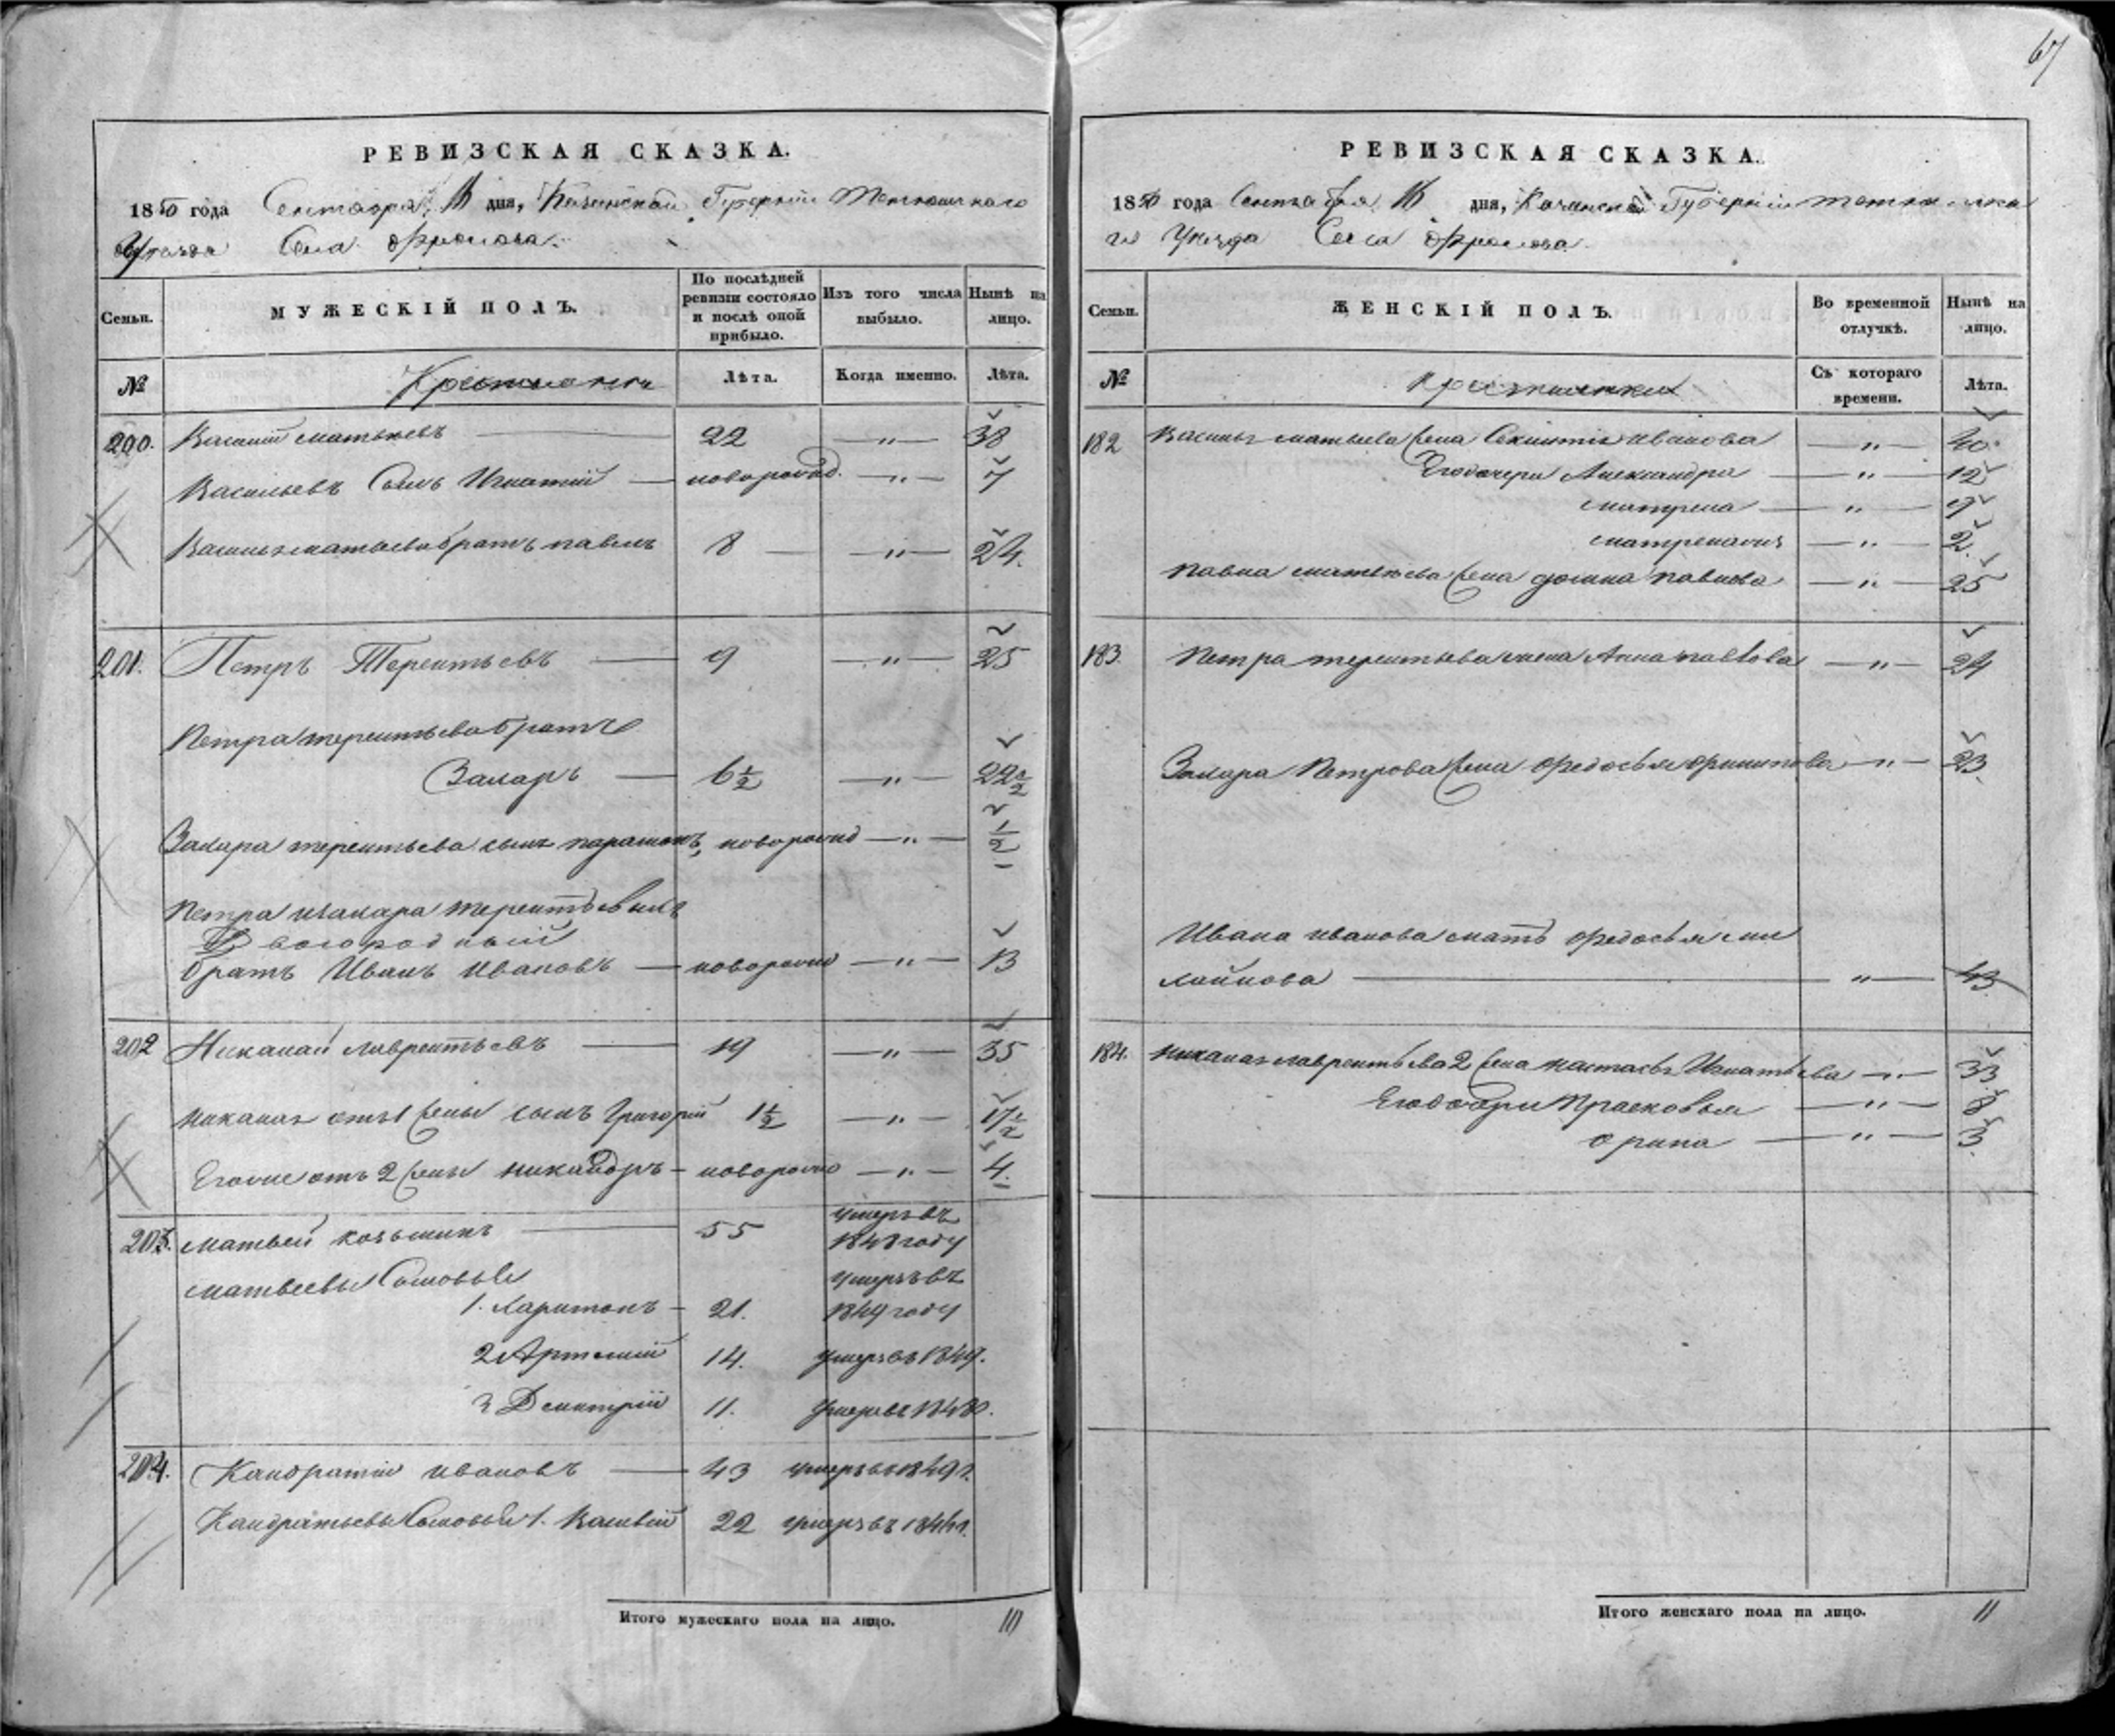 67
РЕВИЗСКАЯ СКАЗКА.
1850 года Сентября дня, Казанской Губернии Тетюшскаго
Уезда Села Фролова.
Семьи.
МУЖЕСКІЙ ПОЛЪ.
По послѣдней ревизіи состояло и послѣ оной прибыло.
Изъ того числа выбыло.
Нынѣ на лицо.
№
Крестьяне
Лѣта.
Когда именно.
Лѣта.
200. Василий матвеевъ 22 — " — 38
Васильевъ Сынъ Игнатий — новорожд. — " — 7
Василья матвеева братъ павелъ 8 — " — 24.
201. Петръ Терентьевъ 9 — " — 25
Петра терентьева братъ
Захаръ — 6½ — " — 22½
Захара терентьева сынъ парамонъ, новорожд — " — ½
Петра изахара терентьевыхъ
Двоюродный
братъ Иванъ Ивановъ — новорожд — " — 13
202 Никалай лаврентьевъ 19 — " — 35
никалая отъ 1 жены сынъ Григорий 1½ — " — 17½
Егоже отъ 2 жены никандръ — новорожд — " — 4.
203. матвей козьминъ 55 умеръ въ 1848 году
матвеевы Сыновья
1. Харитонъ — 21. умеръ въ 1849 году
2 Артемий 14. умеръ въ 1849.
3 Дмитрий 11. умеръ въ
204. Кандратий ивановъ 43 умеръ въ 1849 г.
Кандратьевы Сыновья 1. 22 умеръ въ
Итого мужескаго пола на лицо. 10
РЕВИЗСКАЯ СКАЗКА.
1850 года Сентября дня, Казанской Губернии тетюшска
го Уезда Села Фролова.
Семьи.
ЖЕНСКІЙ ПОЛЪ.
Во временной отлучкѣ.
Нынѣ на лицо.
№
крестьянки
Съ котораго времени.
Лѣта.
182 Василья матвеева жена иванова — " — 40.
Егодочери Александра — " — 12
матрена — " — 9
матрена — " — 2.
павла матвеева жена домна павлова — " — 25
183. Петра терентьева жена Анна павлова — " — 24
Захара Петрова жена федосья филипова — " — 23
Ивана иванова мать федосья ми
хайлова — " — 43
184. никалая лаврентьева 2 жена настасья Игнатьева — " — 33
Егодочери Прасковья — " — 8
орина — " — 3.
Итого женскаго пола на лицо. 11